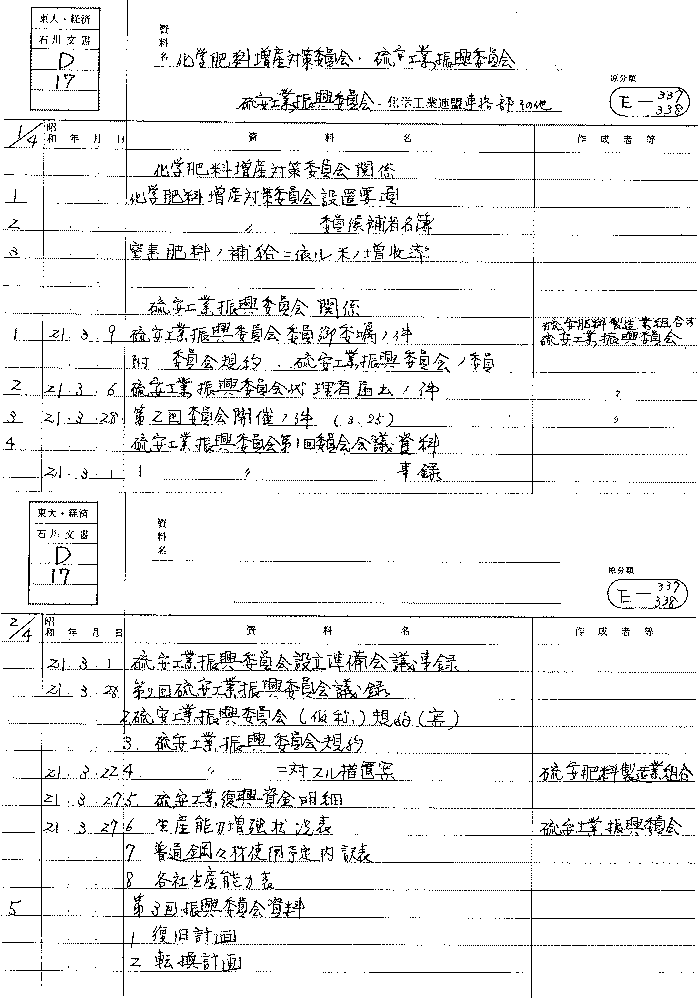 東大・経済
石川文書
D
17
資料名 化学肥料増産対策委員会・硫安工業振興委員会
硫安工業振興委員会・化学工業連盟連絡部その他
原分類
E-337
338
1/4 昭和 年 月 日 資料名 作成者等
化学肥料増産対策委員会関係
1 化学肥料増産対策委員会設置要項
2 〃 委員候補者名簿
3 窒素肥料ノ補給ニ依ル米ノ増収率
硫安工業振興委員会関係
1 21.3.9 硫安工業振興委員会委員御委嘱ノ件 硫安肥料製造業組合
硫安工業振興委員会
附 委員会規約、硫安工業振興委員会ノ委員
2 21.3.6 硫安工業振興委員会代理者届出ノ件 〃
3 21.3.28 第2回委員会開催ノ件 (3.25) 〃
4 硫安工業振興委員会第1回委員会会議資料
21.3.1 1 〃 事録
東大・経済
石川文書
D
17
資料名
原分類
E-337
338
2/4 昭和 年 月 日 資料名 作成者等
21.3.1 硫安工業振興委員会設立準備会議事録
21.3.28 第2回硫安工業振興委員会議録
2 硫安工業振興委員会(仮称)規約(案)
3. 硫安工業振興委員会規約
21.3.22 4 〃 ニ対スル措置案 硫安肥料製造業組合
21.3.27 5 硫安工業復興資金明細
21.3.27 6 生産能力増強状況表 硫安工業振興委員会
7 普通鋼々材使用予定内訳表
8 各社生産能力表
5 第3回振興委員会資料
1 復旧計画
2 転換計画